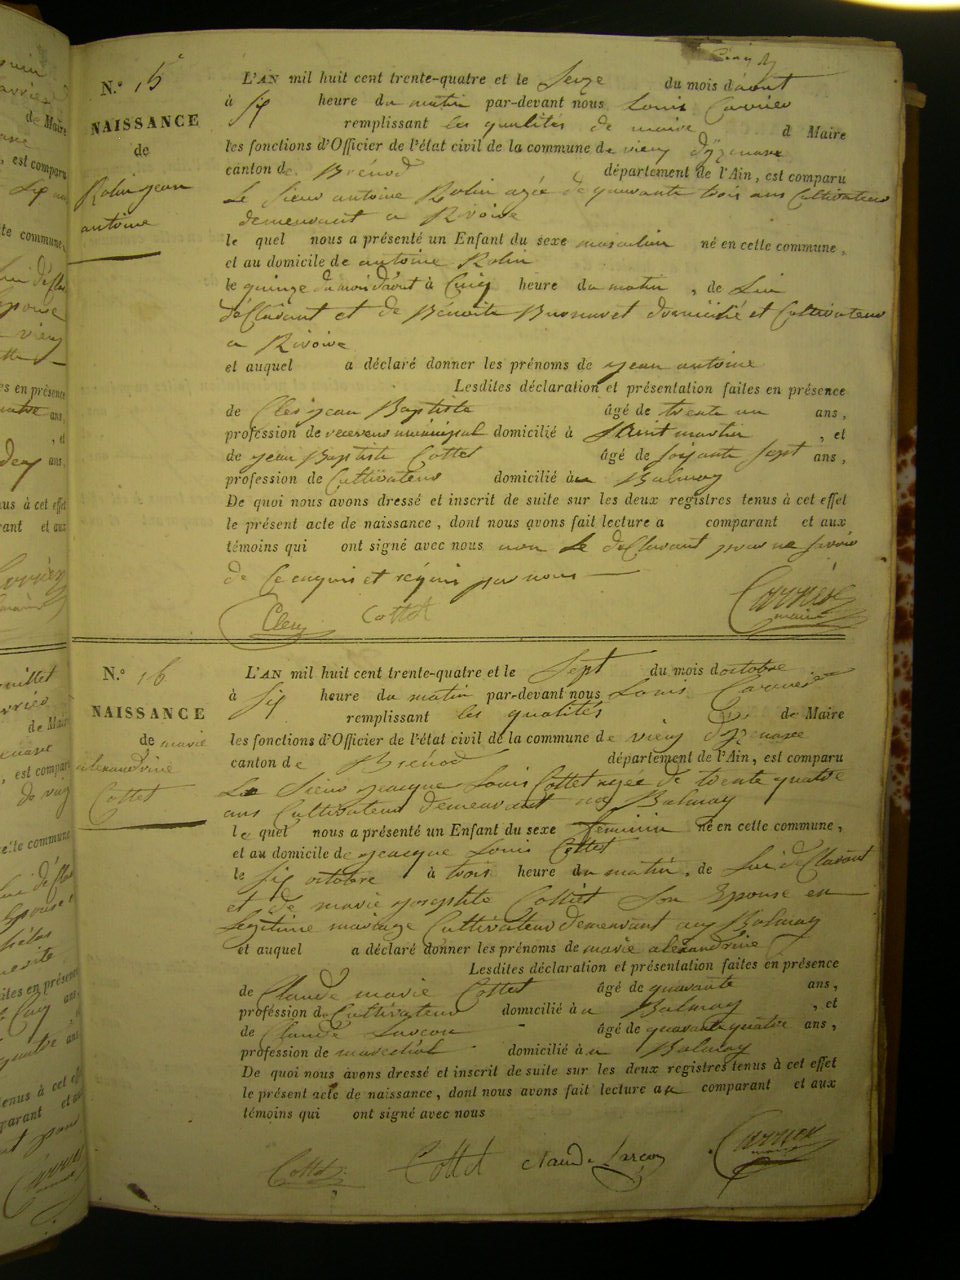 N.º 15
NAISSANCE
de
Robin jean
antoine
L'AN mil huit cent trente-quatre et le Seize du mois d'aout
à Six heure du matin par-devant nous Louis Carrier
remplissant les qualités de maire d Maire
les fonctions d'Officier de l'état civil de la commune de vieux d'izenave
canton de Brénod département de l'Ain, est comparu
Le Sieur antoine Robin agée de quarante trois ans Cultivateur
demeurant a Rivoire
le quel nous a présenté un Enfant du sexe masculin né en cette commune,
et au domicile de antoine Robin
le quinze du mois d'aout à Cinq heure du matin, de Lui
déClarant et de Bénoite domicilié et Cultivateur
a Rivoire
et auquel a déclaré donner les prénoms de jean antoine
Lesdites déclaration et présentation faites en présence
de Clerj jean Baptiste âgé de trente un ans,
profession de receveur municipal domicilié à Saint martin, et
de jean Baptiste Cottet âgé de soixante sept ans,
profession de Cultivateur domicilié à Balmay
De quoi nous avons dressé et inscrit de suite sur les deux registres tenus à cet effet
le présent acte de naissance, dont nous avons fait lecture a comparant et aux
témoins qui ont signé avec nous non le déClarant pour ne savoir
de Ce enquis et réquis par nous
Clerj Cottet Carrier
maire
N.º 16
NAISSANCE
de marie
alexandrine
Cottet
L'AN mil huit cent trente-quatre et le Sept du mois d'octobre
à Six heure du matin par-devant nous Louis Carrier
remplissant les qualités de Maire
les fonctions d'Officier de l'état civil de la commune de vieux d'izenave
canton de Brénod département de l'Ain, est comparu
Le Sieur jacque Louis Cottet agée de trente quatre
ans Cultivateur demeurant au Balmay
le quel nous a présenté un Enfant du sexe feminin né en cette commune,
et au domicile de jacque Louis Cottet
le six octobre à trois heure du matin, de Lui déClarant
et de marie josephte Cottet Son Epouse en
Legitime mariage Cultivateur demeurant au Balmay
et auquel a déclaré donner les prénoms de marie alexandrine
Lesdites déclaration et présentation faites en présence
de Claude marie Cottet âgé de quarante ans,
profession de Cultivateur domicilié à Balmay, et
de Claude Larçon âgé de quarante quatre ans,
profession de marechal domicilié à Balmay
De quoi nous avons dressé et inscrit de suite sur les deux registres tenus à cet effet
le présent acte de naissance, dont nous avons fait lecture au comparant et aux
témoins qui ont signé avec nous
Cottet Cottet claude Larçon Carrier
maire